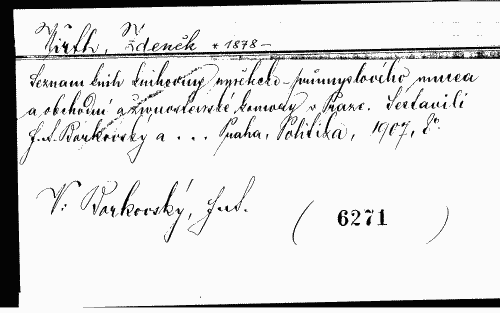 Wirth, Zdeněk * 1878 –
Seznam knih knihovny umělecko-průmyslového musea
a obchodní a živnostenské komory v Praze. Sestavili
F.A. Borkovský a ... Praha, Politika, 1907, 8°.
V: Borkovský, F.A.
( 6271 )